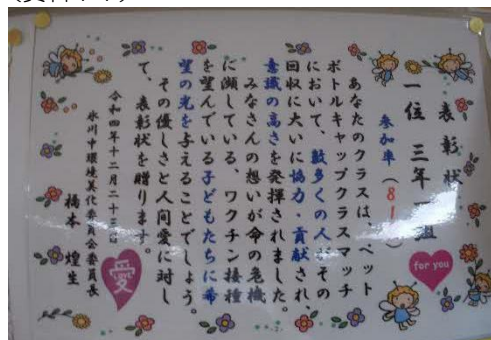 表彰状
一位 三年一組
参加率(81
あなたのクラスは、ペット
ボトルキャップクラスマッチ
において、数多くの人がその
回収に大いに協力・貢献され、
意識の高さを発揮されました。
みなさんの想いが命の危機
に瀕している、ワクチン接種
を望んでいる子どもたちに希
望の光を与えることでしょう。
その優しさと人間愛に対し
て、表彰状を贈ります。
令和四年十二月二十三日
氷川中環境美化委員会委員長
橋本 煌生
for you
LOVE
愛